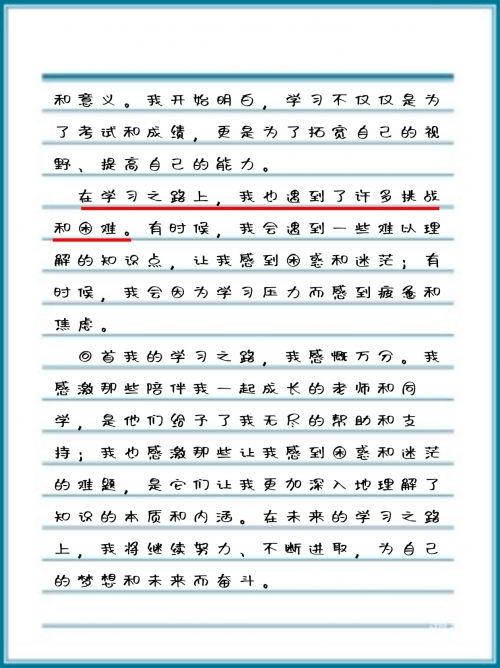 和意义。我开始明白，学习不仅仅是为
了考试和成绩，更是为了拓宽自己的视
野、提高自己的能力。
在学习之路上，我也遇到了许多挑战
和困难。有时候，我会遇到一些难以理
解的知识点，让我感到困惑和迷茫；有
时候，我会因为学习压力而感到疲惫和
焦虑。
回首我的学习之路，我感慨万分。我
感激那些陪伴我一起成长的老师和同
学，是他们给予了我无尽的帮助和支
持；我也感激那些让我感到困惑和迷茫
的难题，是它们让我更加深入地理解了
知识的本质和内涵。在未来的学习之路
上，我将继续努力、不断进取，为自己
的梦想和未来而奋斗。